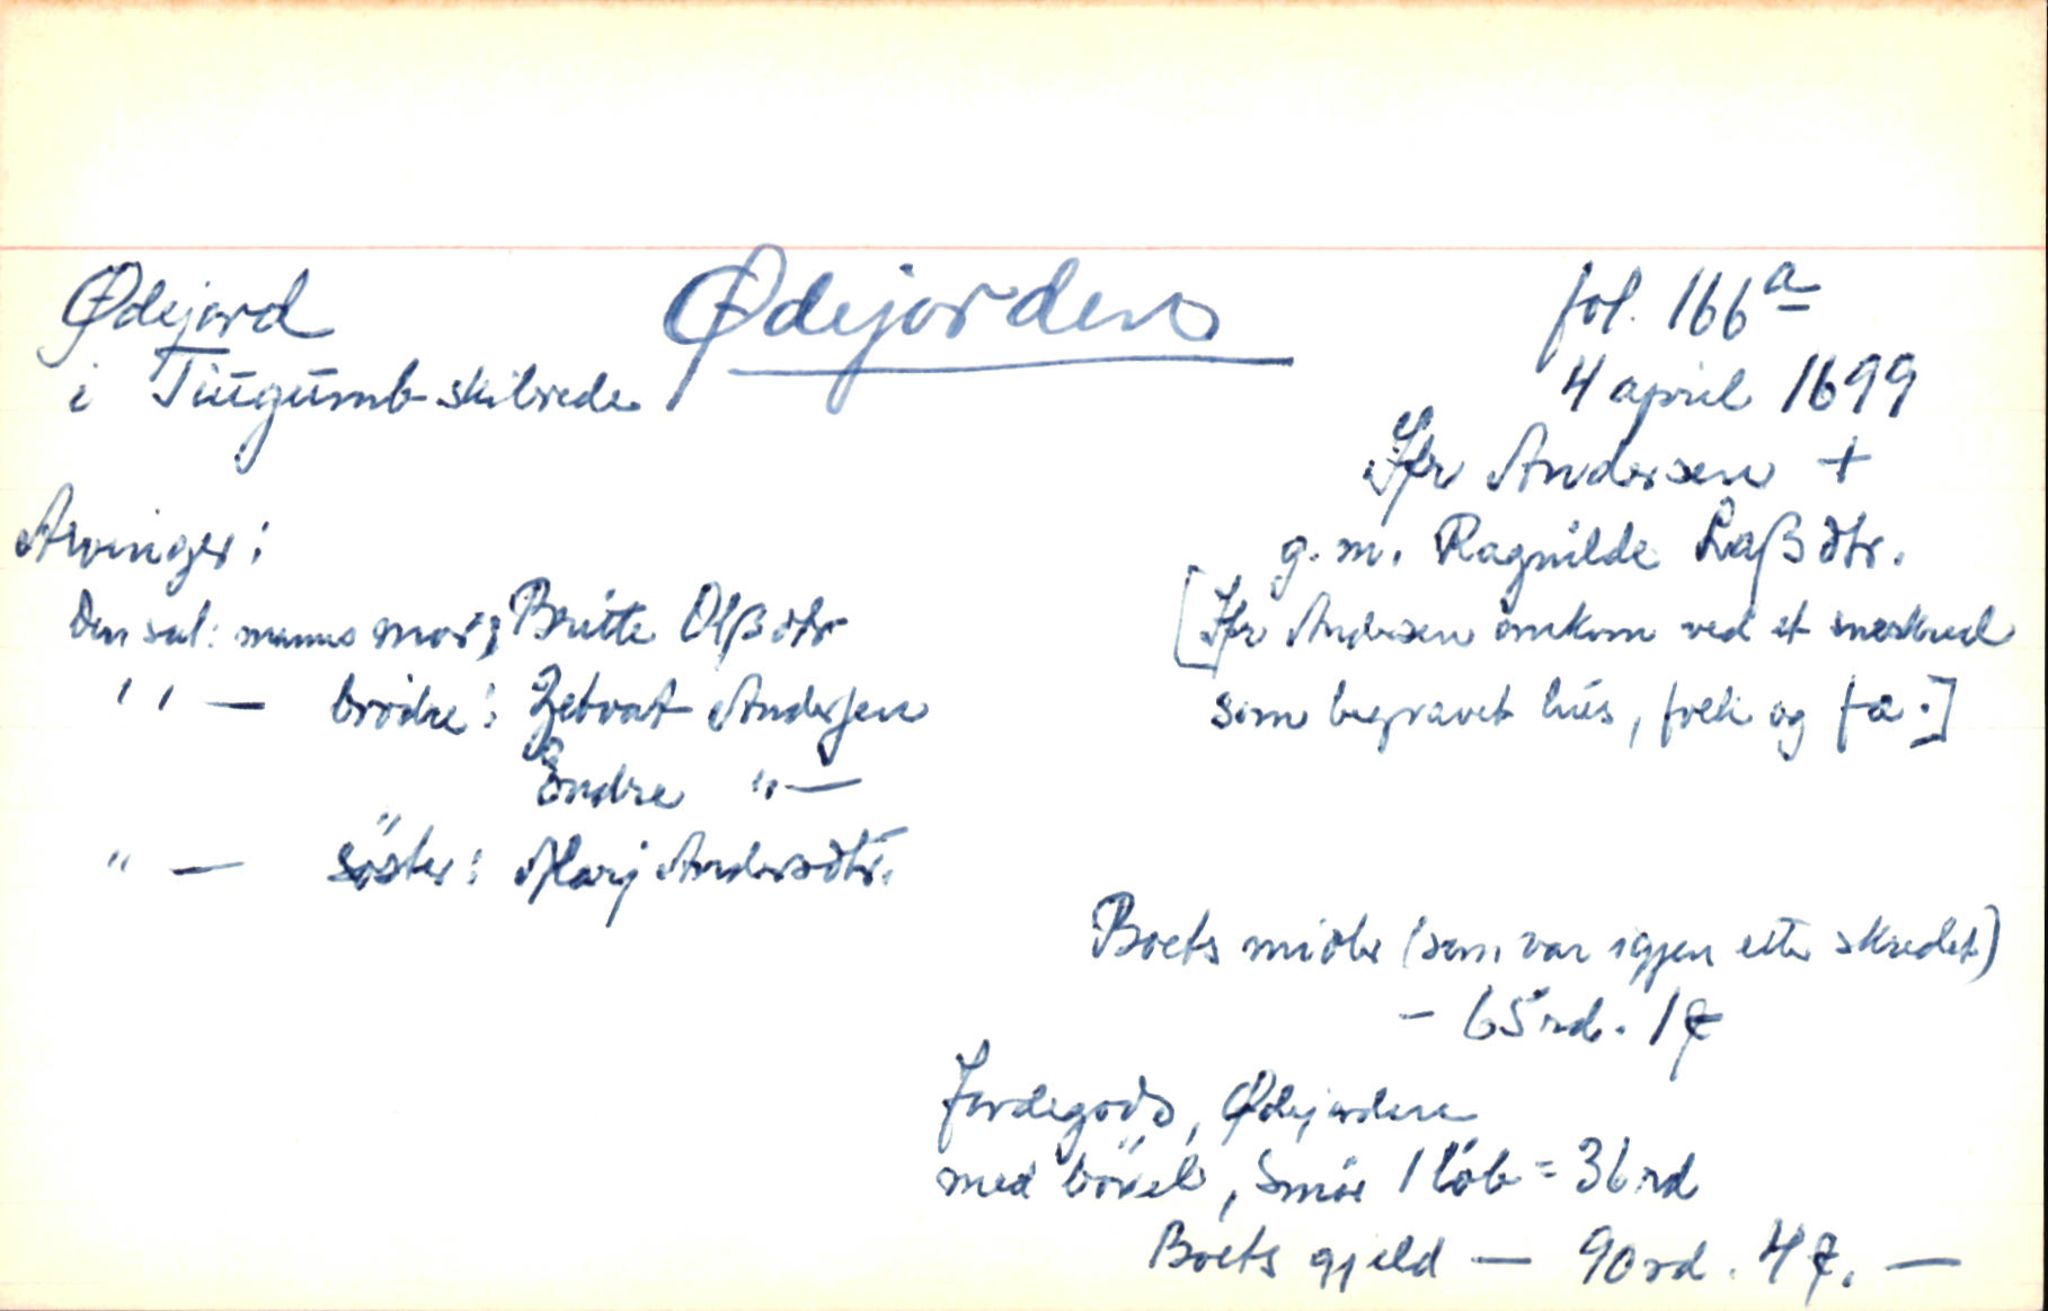 Ødejord
i Tiugumb skibrede
Ødejorden
fol. 166a
4 april 1699
Ifr Andersen +
g. m. Ragnilde Laßdtr.
[Ifr Andersen omkom ved et sneskred
som begravet hus, folk og fæ.]
Arvinger:
Den sal: manns mor; Britte Olßdtr
" — brödre: Zetvat Anderſen
Endre " —
" — söster: Marj Andersdtr.
Boets midler (som var igjen etter skredet)
- 65 rd. 1
Jordegods, Ødejorden
med böxel, Smör 1 löb = 36 rd
Boets gjeld — 90 rd. 4 . —